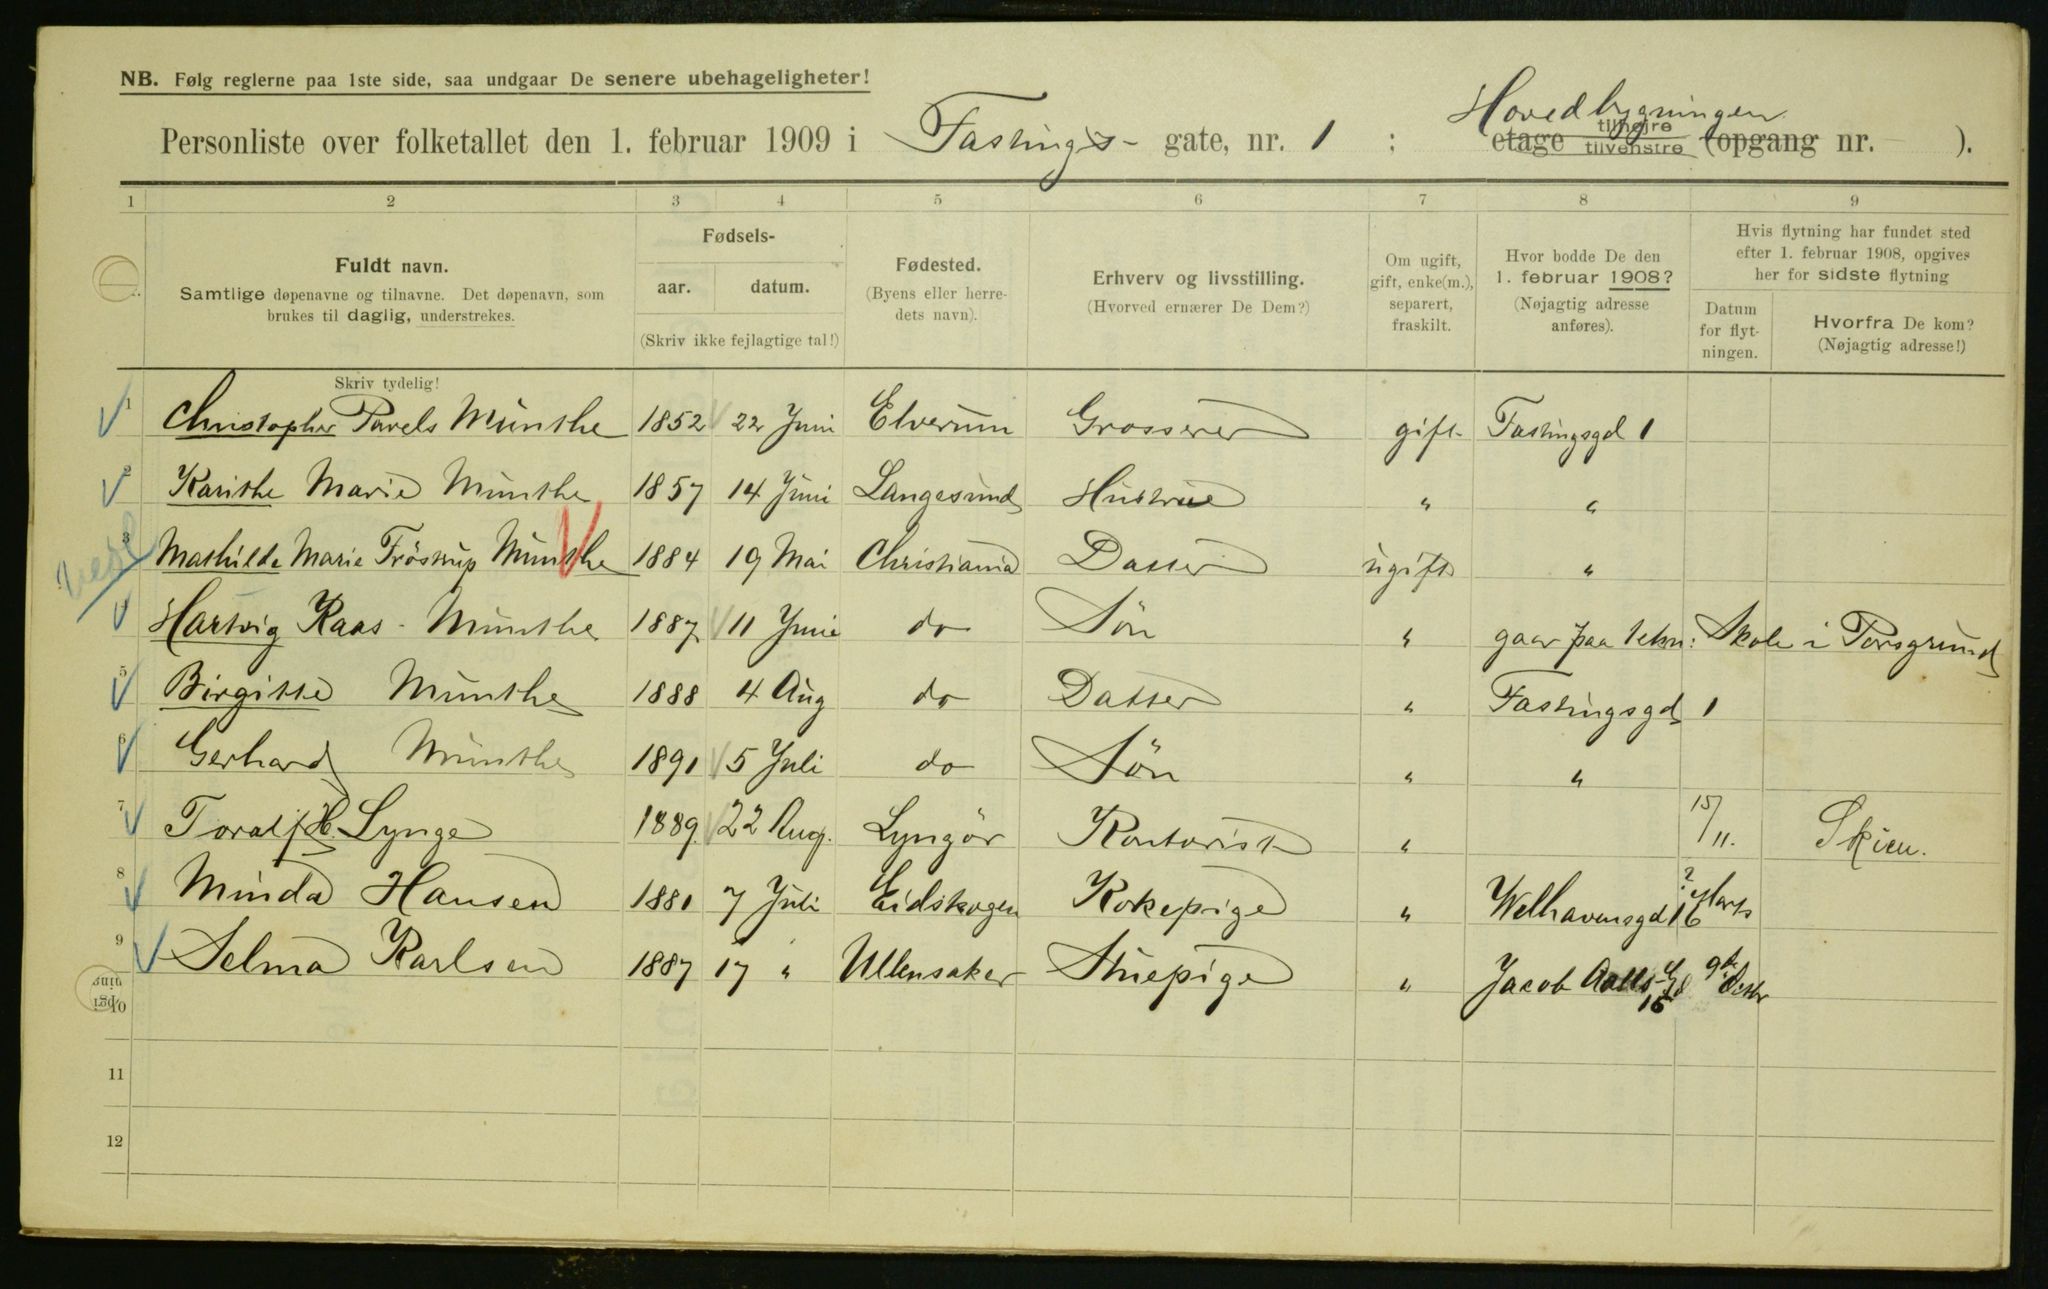 NB. Følg reglerne paa 1ste side, saa undgaar De senere ubehageligheter!
Hovedbygningen
Personliste over folketallet den 1. februar 1909 i Fastings- gate, nr. 1 ; etage tilhøire tilvenstre (opgang nr. ).
1 2 3 4 5 6 7 8 9
Fuldt navn.
Samtlige døpenavne og tilnavne. Det døpenavn, som
brukes til daglig, understrekes.
Skriv tydelig!
Fødsels-
aar. datum.
(Skriv ikke fejlagtige tal!)
Fødested.
(Byens eller herre-
dets navn).
Erhverv og livsstilling.
(Hvorved ernærer De Dem?)
Om ugift,
gift, enke(m.),
separert,
fraskilt.
Hvor bodde De den
1. februar 1908?
(Nøjagtig adresse
anføres).
Hvis flytning har fundet sted
efter 1. februar 1908, opgives
her for sidste flytning
Datum
for flyt-
ningen.
Hvorfra De kom?
(Nøjagtig adresse!)
1 Christopher Pavels Munthe 1852 22 Juni Elverum Grosserer gift Fastingsgd 1
2 Karithe Marie Munthe 1857 14 Juni Langesund Hustrue " "
3 Mathilde Marie Fröstrup Munthe 1884 19 Mai Christiania Datter ugift "
4 Hartvig Kaas - Munthe 1887 11 Juni do Sön " gaar paa tekn: Skole i Porsgrund
5 Birgitte Munthe 1888 4 Aug do Datter " Fastingsgd 1
6 Gerhard Munthe 1891 5 Juli do Sön " "
7 Toralf H. Lynge 1889 22 Aug. Lyngör Kontorist " 15/11. Skien.
8 Minda Hansen 1881 7 Juli Eidskogen Kokepige " Welhavensgd 16 ? Marts
9 Selma Karlsen 1887 17 " Ullensaker Stuepige " Jacob Aalls Gd 15 9de Octbr
10
11
12